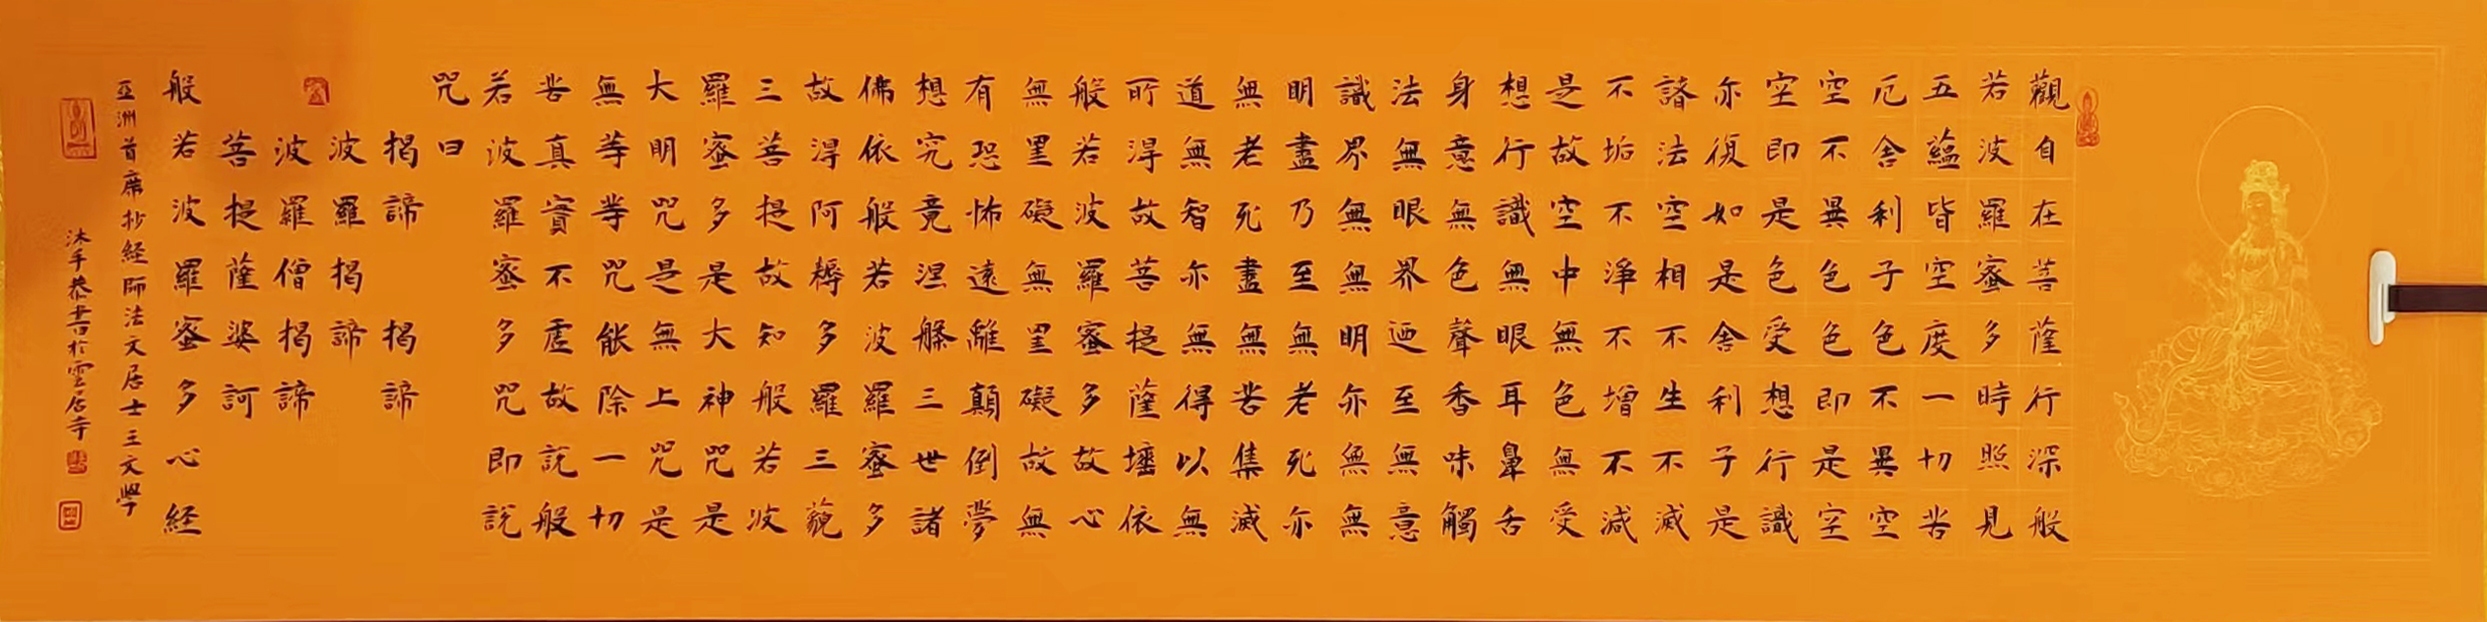 觀自在菩薩行深般
若波羅蜜多時照見
五蘊皆空度一切苦
厄舍利子色不異空
空不異色色即是空
空即是色受想行識
亦復如是舍利子是
諸法空相不生不滅
不垢不淨不增不減
是故空中無色無受
想行識無眼耳鼻舌
身意無色聲香味觸
法無眼界迺至無意
識界無無明亦無無
明盡乃至無老死亦
無老死盡無苦集滅
道無智亦無得以無
所得故菩提薩埵依
般若波羅蜜多故心
無罣礙無罣礙故無
有恐怖遠離顛倒夢
想究竟涅槃三世諸
佛依般若波羅蜜多
故得阿耨多羅三藐
三菩提故知般若波
羅蜜多是大神咒是
大明咒是無上咒是
無等等咒能除一切
苦真實不虛故說般
若波羅蜜多咒即說
咒曰
揭諦 揭諦
波羅揭諦
波羅僧揭諦
菩提薩婆訶
般若波羅蜜多心経
亞洲首席抄経師法文居士王文學
沐手恭書於雲居寺